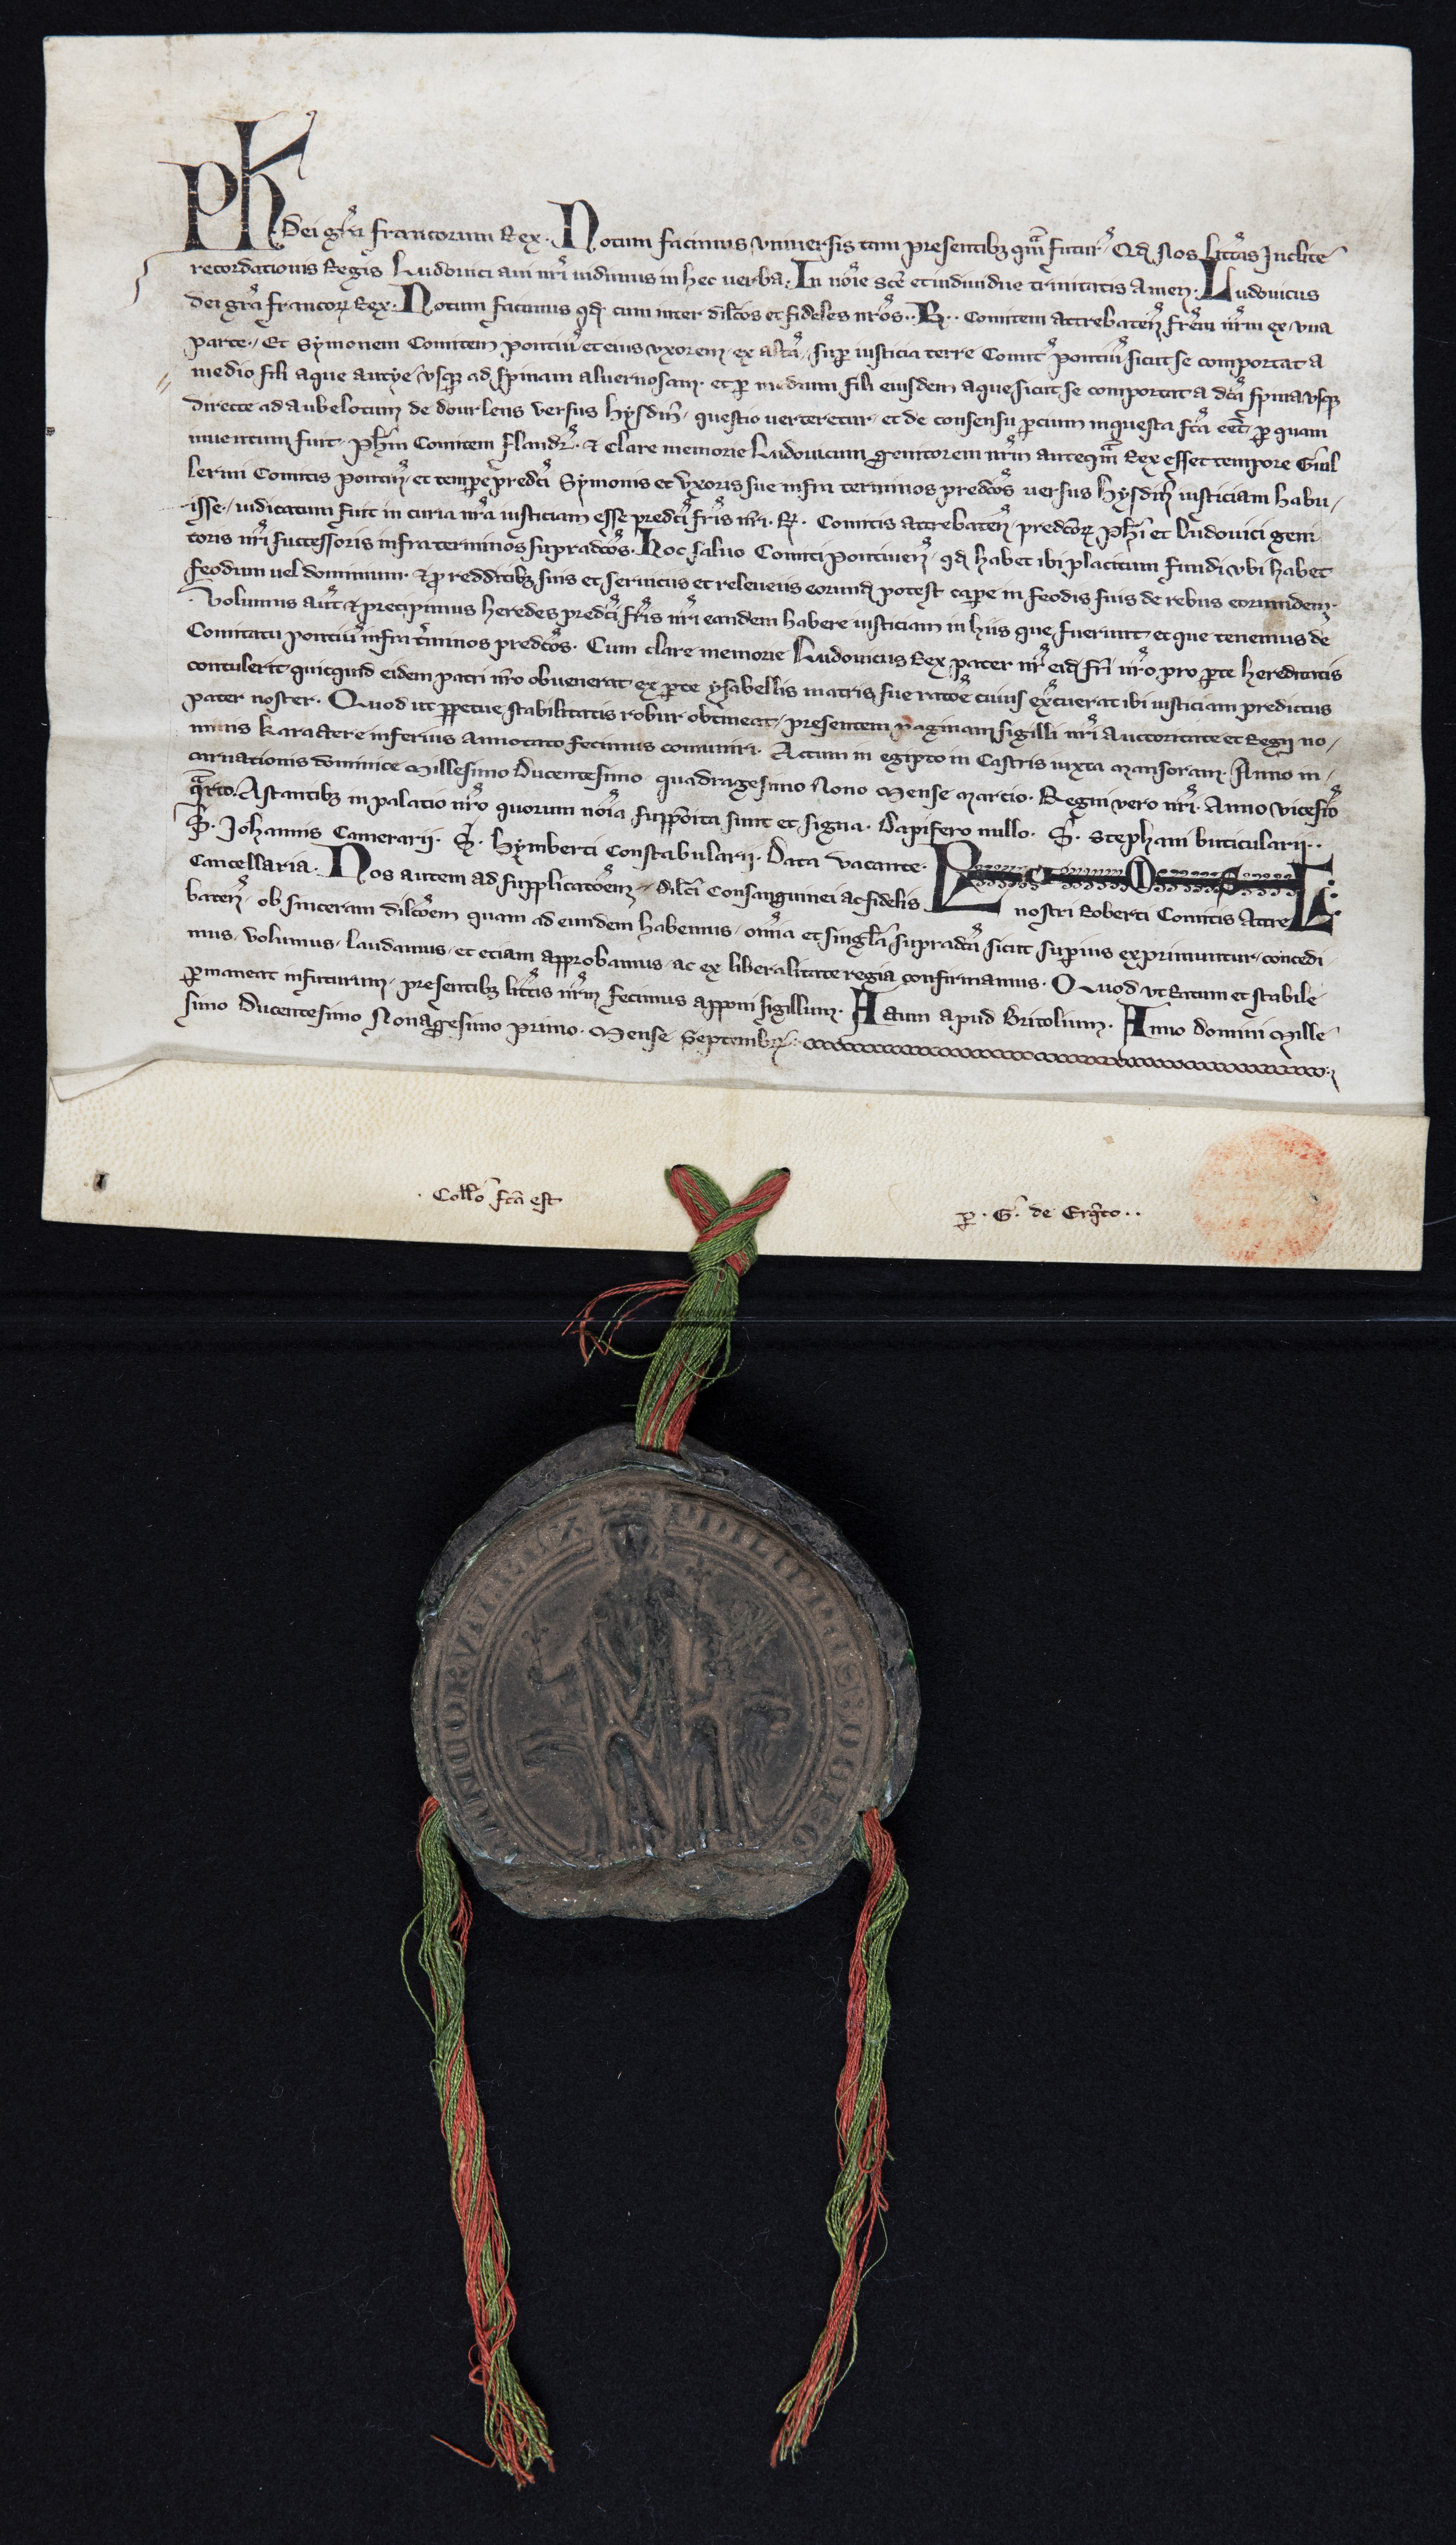 Ph. Dei gr̃a francorum Rex. Notum facimus vniuersis tam presentibꝫ qͣm futur̃. Qđ Nos litt̃as Inclite
recordationis Regis Ludouici aui nr̃i uidimus in hec uerba. In nõie scẽ et indiuidue trinitatis Amen. Ludouicus
dei gr̃a francoꝝ Rex. Notum facimus qđ cum inter dilc̃os et fideles nr̃os .. R .. Comitem attrebateñ fr̃em nr̃m ex vna
parte. Et Symonem Comitem pontiũ et eius vxorem ex alt̃a, suꝑ iusticia terre Comit̃ pontiũ sicut se comportat a
medio fili aque autýe vsqꝫ ad spinam aluernosam. et ꝑ medium fili eiusdem aque sicut se comportat a dc̃a spina vsqꝫ
directe ad aubelotum de dourlens versus hysdiñ, questio uerteretur, et de consensu ꝑcium inquesta fc̃a eẽt, ꝑ quam
inuentum fuit. Ph̃m Comitem flandr̃. & clare memorie Ludouicum genitorem nr̃m anteqͣm Rex esset tempore Guil
lermi Comitis pontiũ, et tempẽ predc̃i Symonis et vxoris sue infra terminos predc̃os uersus hysdiñ iusticiam habu,
isse, iudicatum fuit in curia nr̃a iusticiam esse predc̃i fr̃is nr̃i. R. Comitis attrebateñ, predc̃oꝝ Ph̃i et Ludouici geni
toris nr̃i successoris infra terminos sup̃adc̃os. Hoc saluo Comiti pontiueñ, qđ habet ibi placitum fundi vbi habet
feodum uel dominium. & ꝓ redditibꝫ suis et seruiciis et releueiis eorund̃ potest caꝑe in feodis suis de rebus eorumdem.
Volumus aũt & precipimus heredes predc̃i fr̃is nr̃i eandem habere iusticiam in hiis que fuerunt et que tenemus de
Comitatu pontiũ infra t̃minos predc̃os. Cum clare memorie Ludouicus Rex pater nr̃ eid̃ fr̃i nr̃o pro ꝑte hereditatis
contulerit quicquid eidem patri nr̃o obuenerat ex ꝑte ysabellis matris sue rac̃oe cuius ex̃cuerat ibi iusticiam predictus
pater noster. Quod ut ꝑpetue stabilitatis robur obtineat, presentem paginam sigilli nr̃i auctoritate et Regii no,
minis karactere inferius annotato fecimus com̃uniri. Actum in egipto in Castris iuxta mansoram. Anno in,
carnationis dominice Millesimo Ducentesimo quadragesimo Nono Mense Marcio. Regni vero nr̃i. Anno vicesiõ
qͣrto. Astantibꝫ in palatio nr̃o quorum nõia supp̃oita sunt et signa. Dapifero nullo. S̃. Stephani buticularii..
S̃. Johannis Camerarii. S̃. hymberti Constabularii. Data vacante
Cancellaria. Nos autem ad supplicac̃oem dilc̃i Consanguinei ac fidelis nostri Roberti Comitis Attre
bateñ, ob sinceram dilc̃oem quam ad eundem habemus, om̃ia et singl̃a sup̃adc̃a sicut suꝑius exprimuntur, concedi
mus, volumus, laudamus, et etiam approbamus, ac ex liberalitate regia confirmamus. Quod vt Ratum et stabile
ꝑmaneat infuturum, presentibꝫ litt̃is nr̃m fecimus apponi sigillum. Actum apud Britolium. Anno domini Mille
simo Ducentesimo Nonagesimo primo. Mense Septembr̃.
Coll̃o fc̃a est
ꝑ. G̃. de Erq̃to..